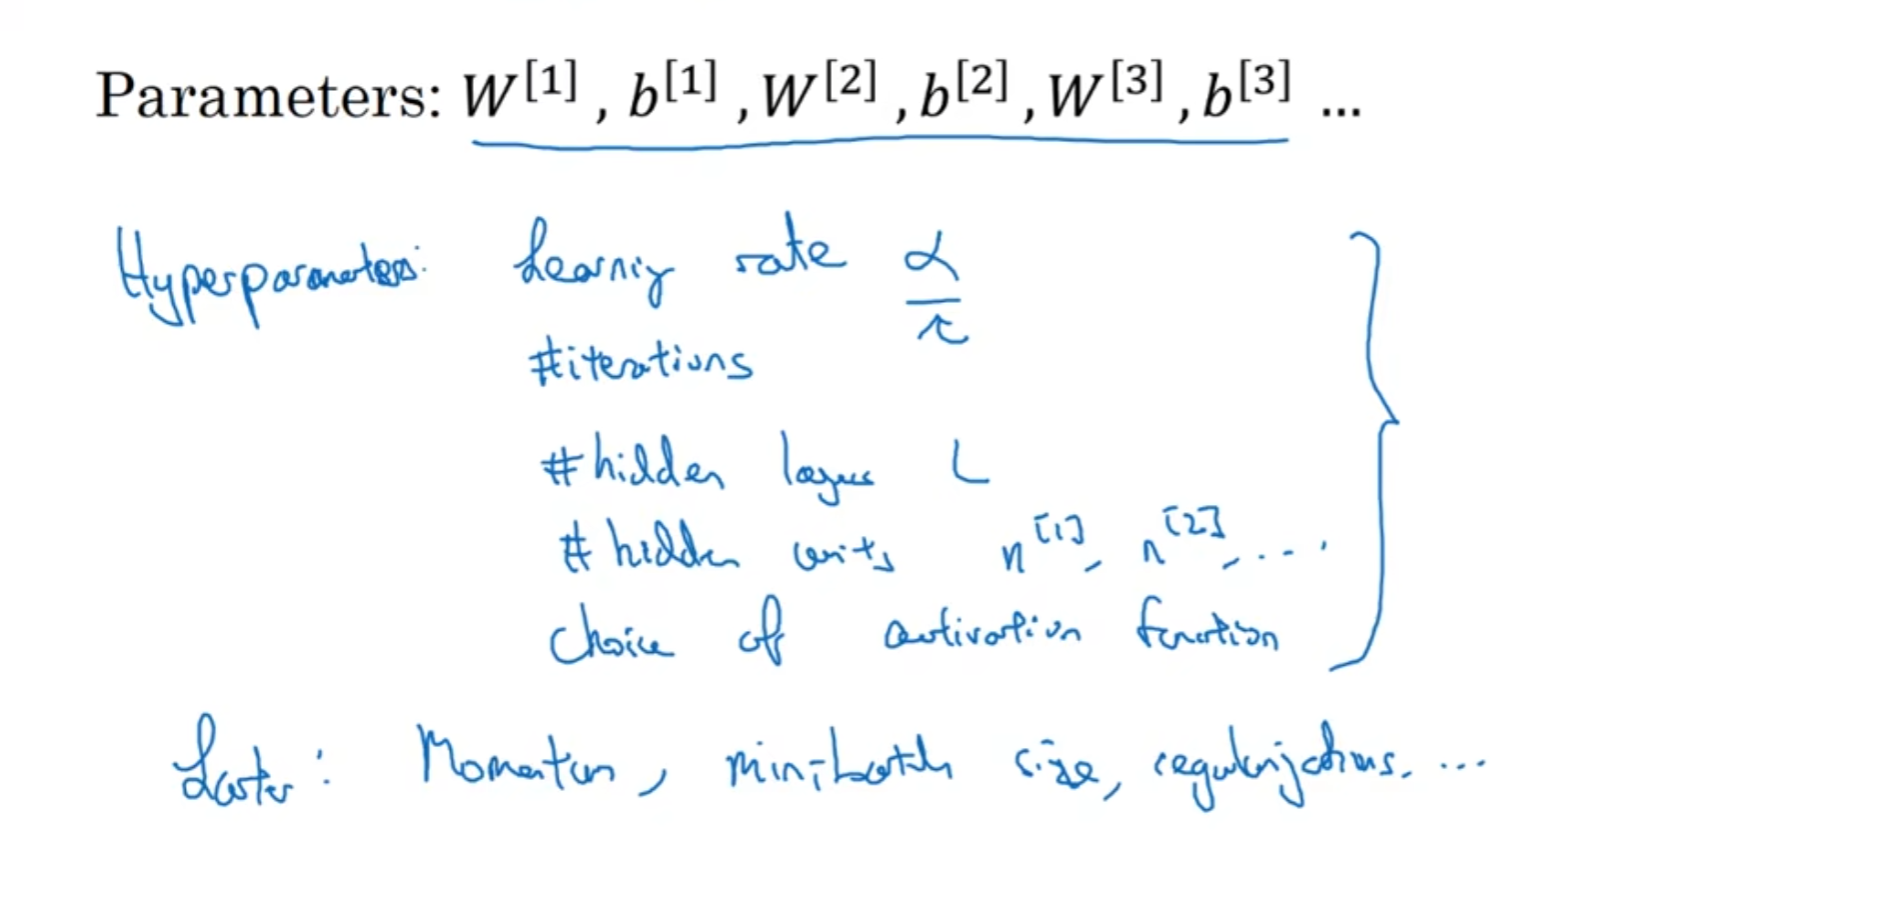 Parameters: W^[1], b^[1], W^[2], b^[2], W^[3], b^[3] ...
Hyperparameters: Learning rate α
#iterations
#hidden layers L
#hidden units n^[1], n^[2], ....
Choice of activation function
Later: Momentum, mini-batch size, regularizations, ...